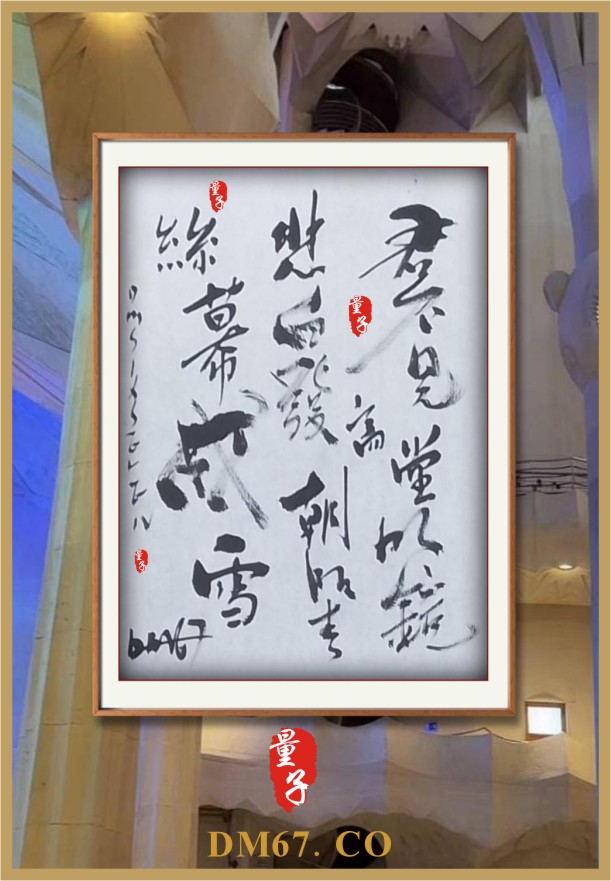 君不見高堂明鏡
悲白髮朝如青
絲暮成雪
DM67
量子
量子
量子
量子
DM67. CO